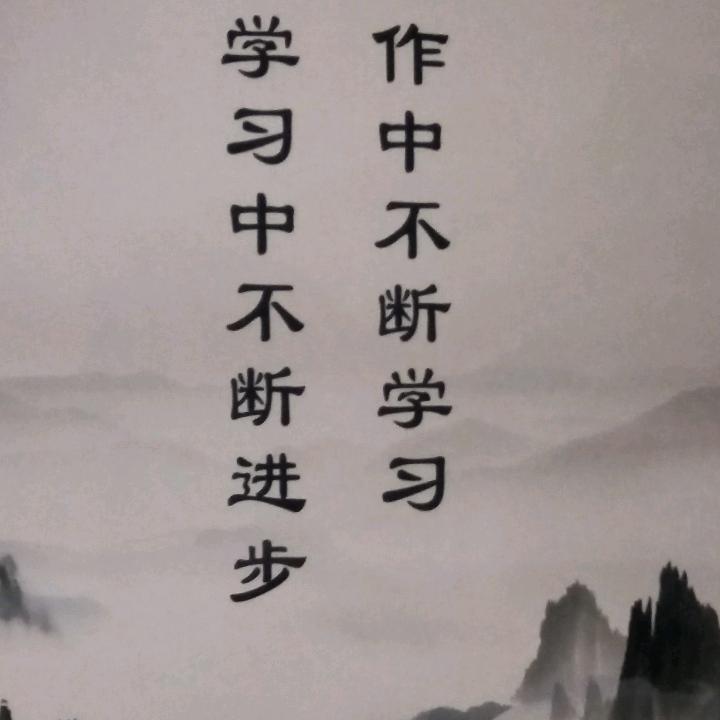 作中不断学习
学习中不断进步